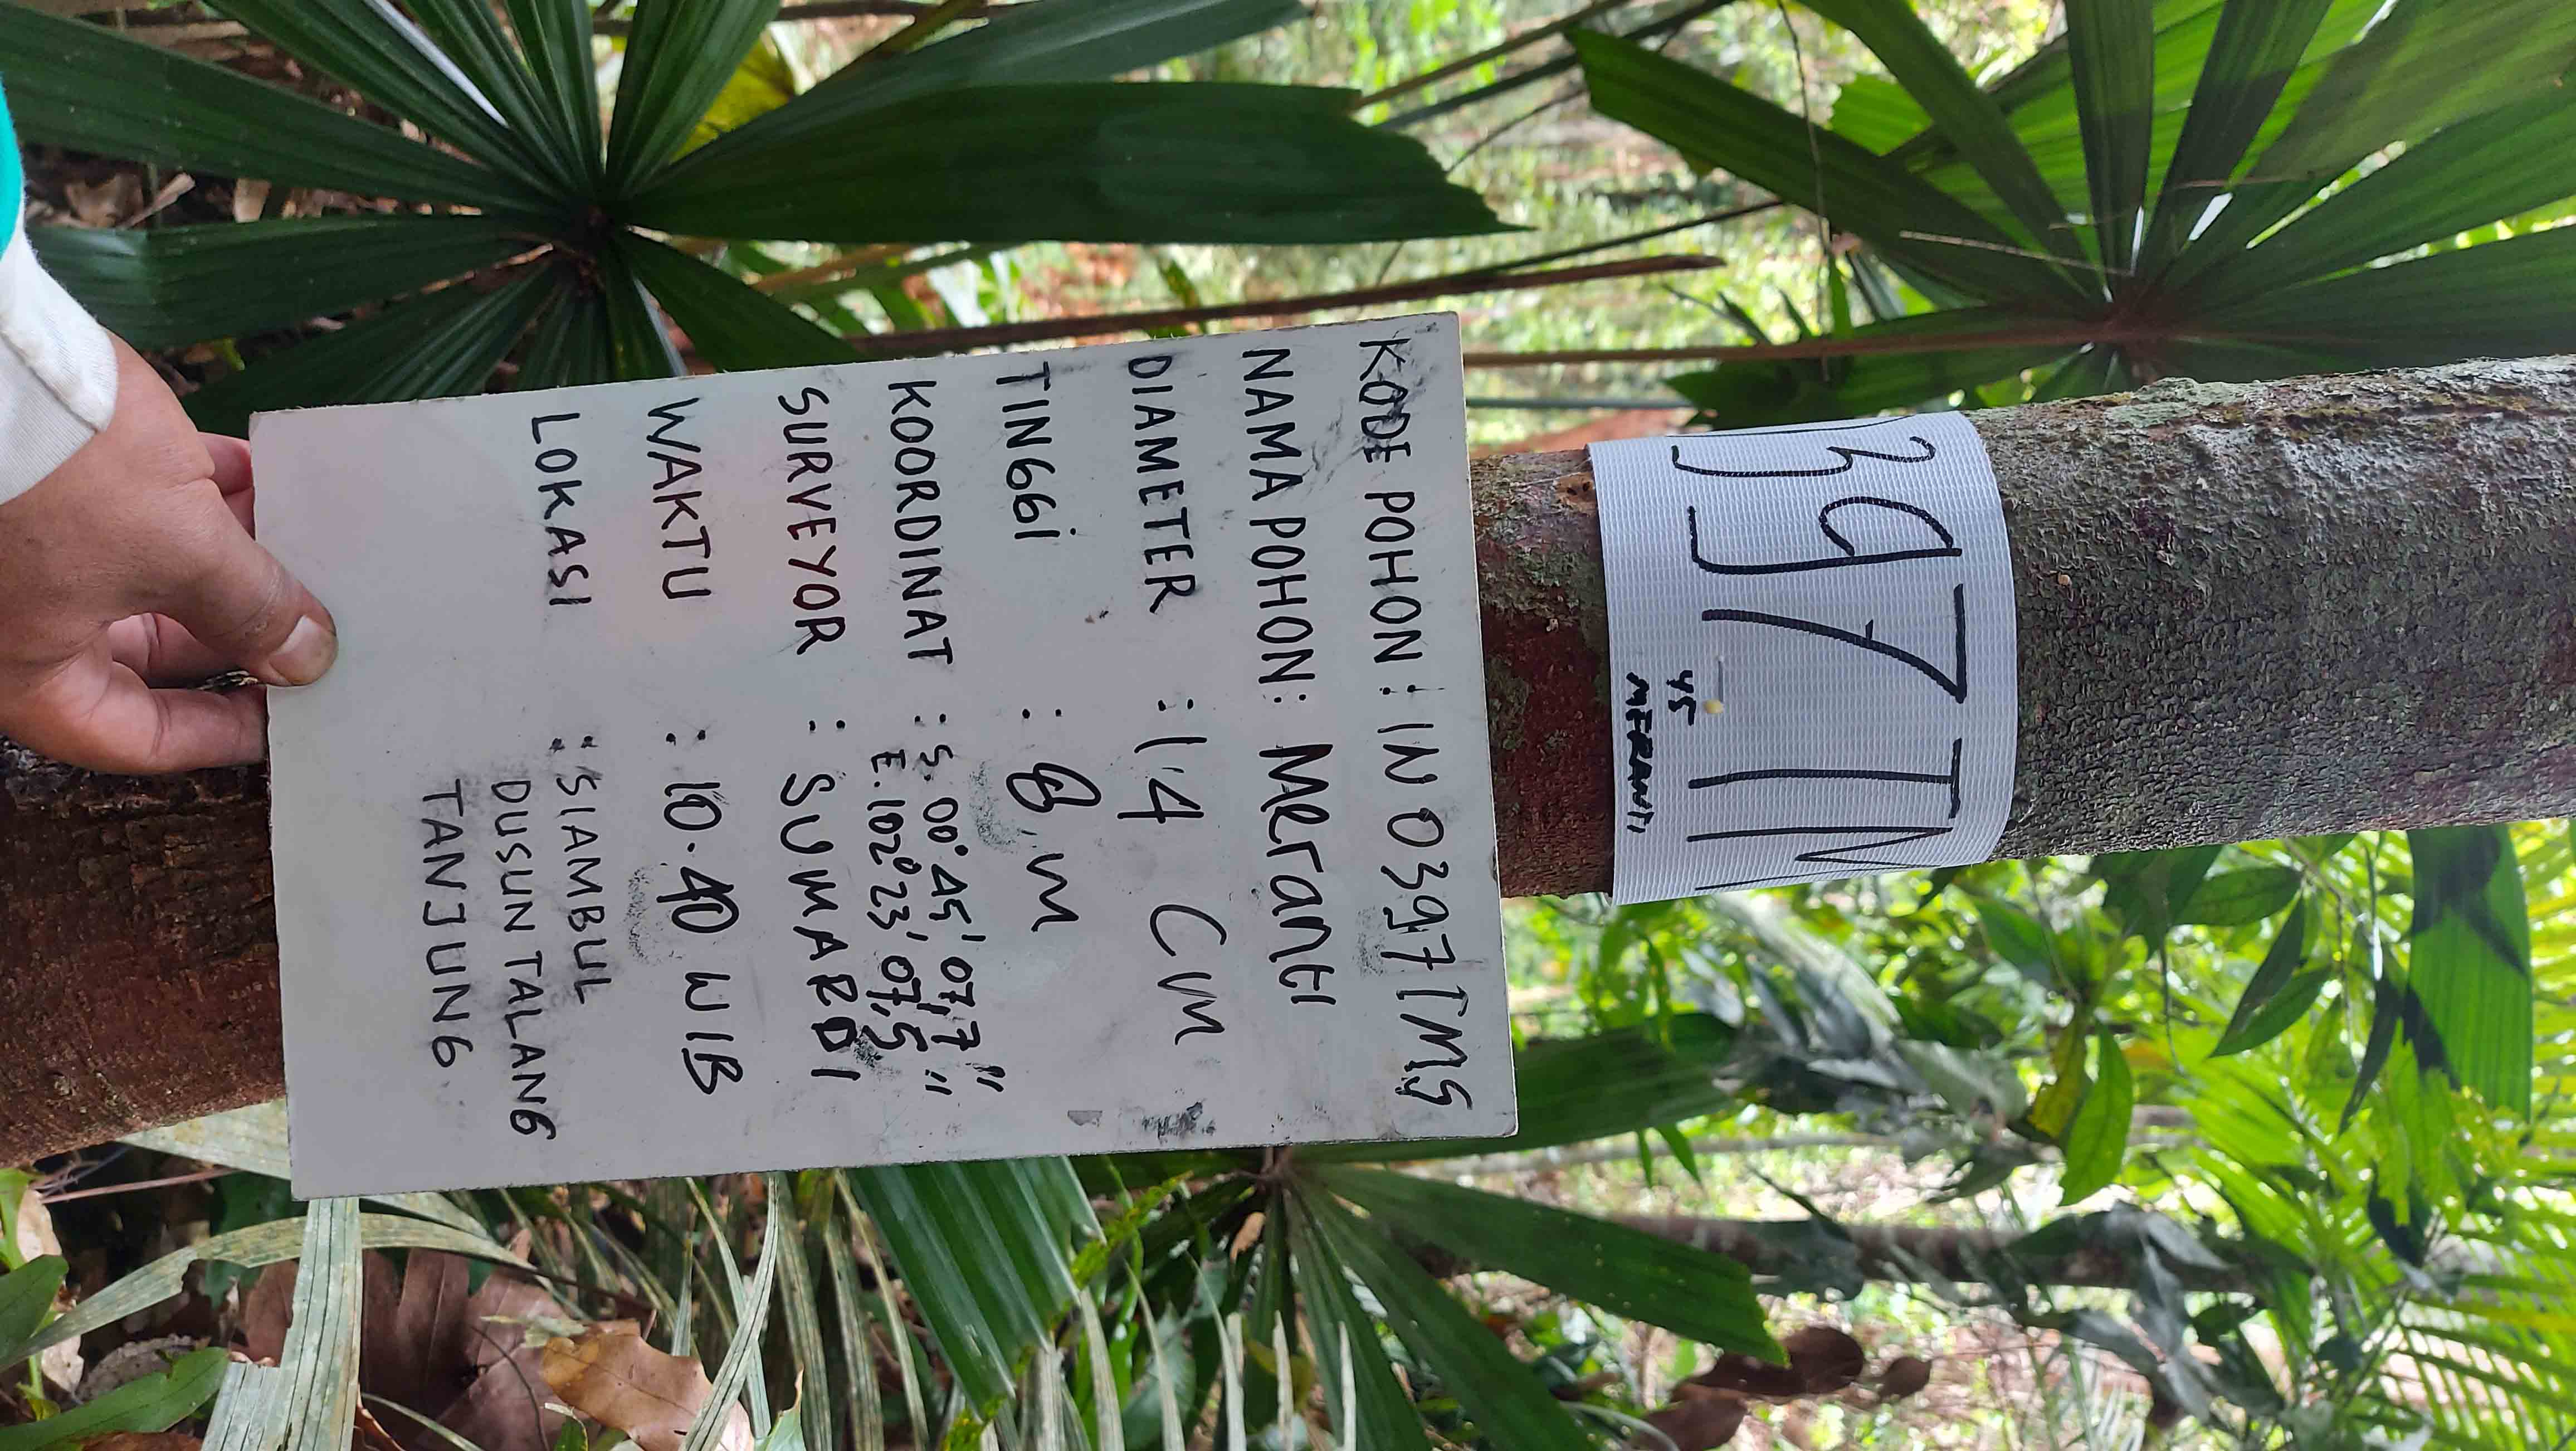 397TM
45
MERANTI
KODE POHON : IN 0397 TMS
NAMA POHON : Meranti
DIAMETER : 14 CM
TINGGi : 8 M
KOORDINAT : S. 00° 45' 07,7"
E. 102° 23' 07,5"
SURVEYOR : SUMARDI
WAKTU : 10.40 WIB
LOKASI : SIAMBUL
DUSUN TALANG
TANJUNG